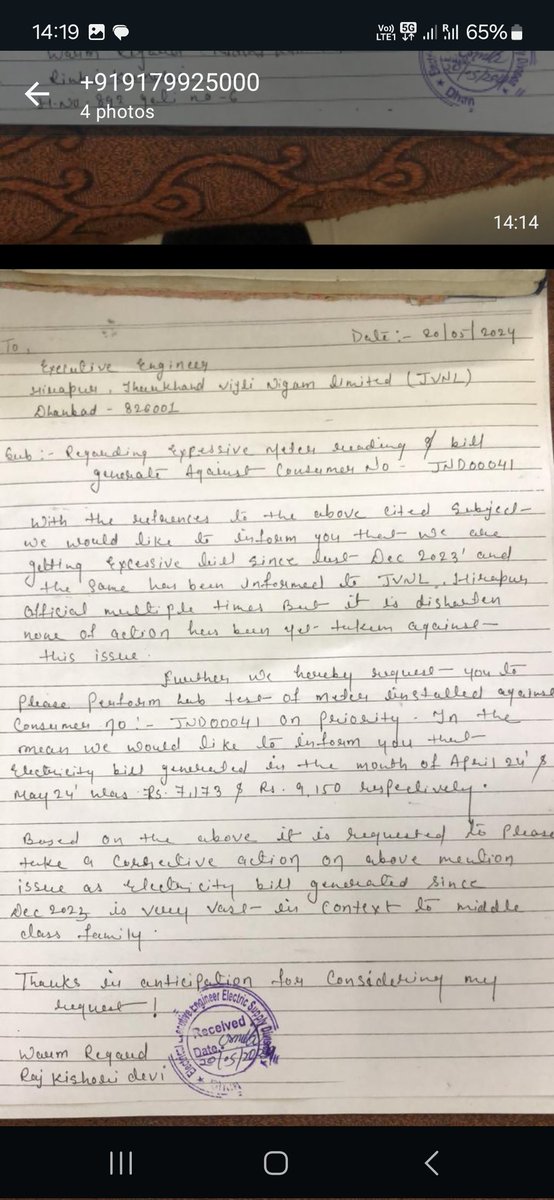 14:19
Vo)) LTE1 5G R 65%
Warm Regard
+919179925000
4 photos
14:14
Date:- 20/05/2024
To,
Executive Engineer
Hirapur, Jharkhand Vijli Nigam Limited (JVNL)
Dhanbad - 826001
Sub:- Regarding Expessive Meter reading & bill
generate Against Consumer No - JND00041
With the references to the above cited Subject-
we would like to inform you that we are
getting Excessive bill since last Dec 2023' and
the same has been informed to JVNL, Hirapur
official multiple times But it is disharten
none of action has been yet taken against
this issue.
Further we hereby request you to
Please Perform Lab test of meter installed against
Consumer no:- JND00041 on Priority. In the
mean we would like to inform you that
Electricity bill generated in the month of April 24' &
May 24' was Rs. 7,173 & Rs. 9,150 respectively.
Based on the above it is requested to Please
take a corrective action on above mention
issue as Electricity bill generated since
Dec 2023 is very vast in context to middle
class family.
Thanks in anticipation for considering my
request!
Warm Regard
Raj Kishori devi
Engineer Electric Supply
Received
Date: 20/05/